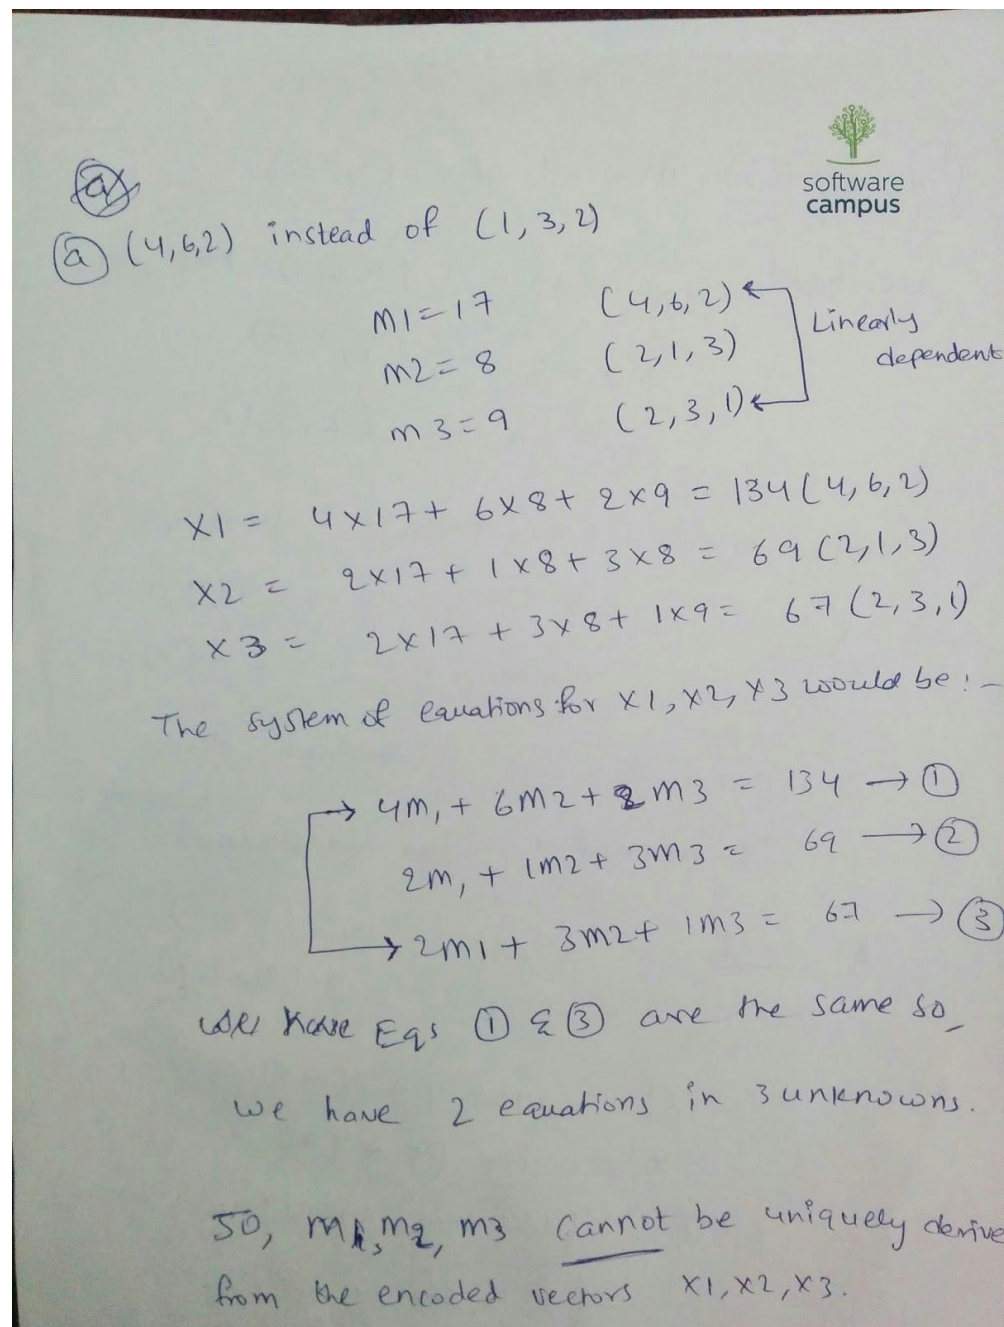 software
campus
a
a (4,6,2) instead of (1,3,2)
m1=17 (4,6,2)
m2=8 (2,1,3)
m3=9 (2,3,1)
Linearly
dependent
X1 = 4×17+ 6×8+ 2×9 = 134 (4,6,2)
X2 = 2×17+ 1×8+ 3×8 = 69 (2,1,3)
X3 = 2×17 + 3×8+ 1×9= 67 (2,3,1)
The system of equations for X1, X2, X3 would be:-
4m1 + 6m2 + 2m3 = 134 → 1
2m1 + 1m2 + 3m3 = 69 → 2
2m1 + 3m2+ 1m3 = 67 → 3
Eqs 1 & 3 are the same so
we have 2 equations in 3 unknowns.
So, m1, m2, m3 cannot be uniquely derive
from the encoded vectors X1, X2, X3.